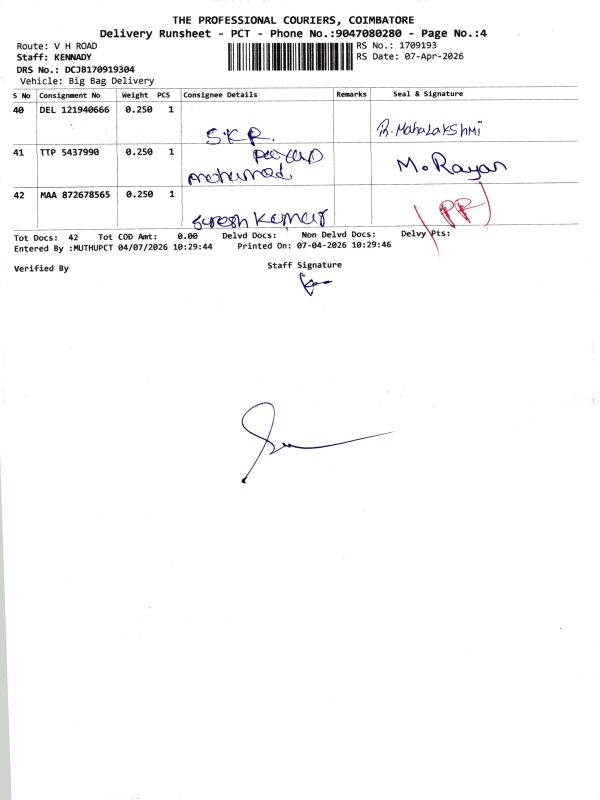 THE PROFESSIONAL COURIERS, COIMBATORE
Delivery Runsheet - PCT - Phone No.:9047080280 - Page No.:4
Route: V H ROAD
RS No.: 1709193
Staff: KENNADY
RS Date: 07-Apr-2026
DRS No.: DCJB170919304
Vehicle: Big Bag Delivery
S No Consignment No Weight PCS Consignee Details Remarks Seal & Signature
40 DEL 121940666 0.250 1
S.K.R. R. MAHALAKSHMI
41 TTP 5437990 0.250 1
mohamed M. Rayan
42 MAA 872678565 0.250 1
Suresh Kumar PR
Tot Docs: 42 Tot COD Amt: 0.00 Delvd Docs: Non Delvd Docs: Delvy Pts:
Entered By :MUTHUPCT 04/07/2026 10:29:44 Printed On: 07-04-2026 10:29:46
Verified By
Staff Signature